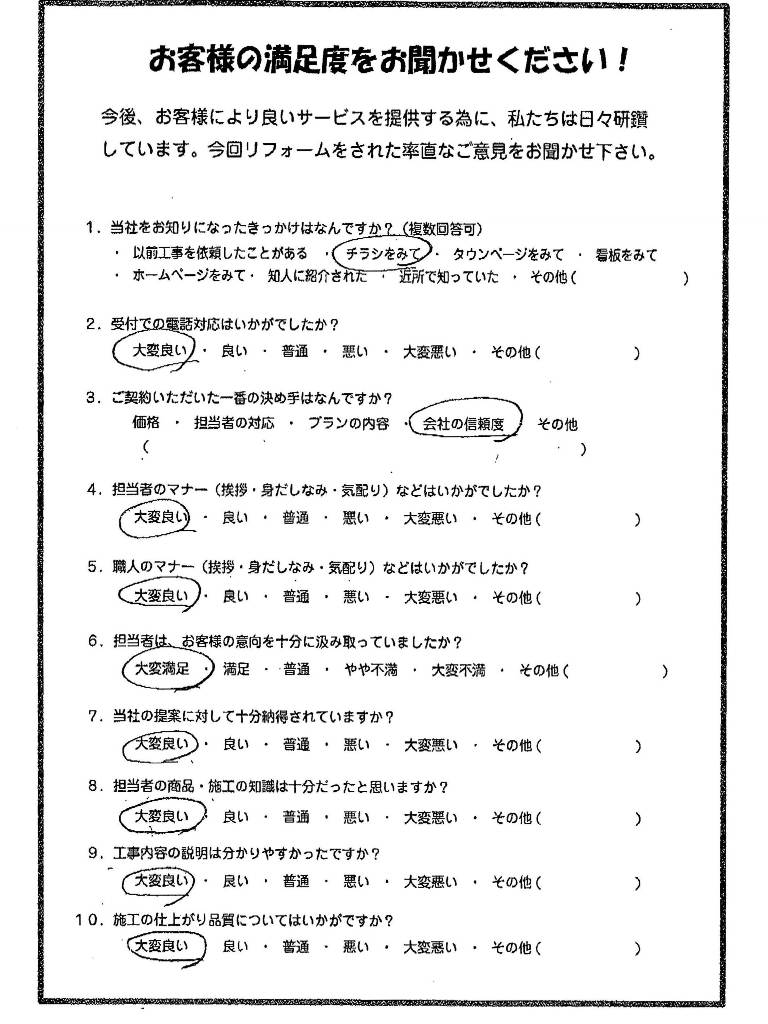 お客様の満足度をお聞かせください！
今後、お客様により良いサービスを提供する為に、私たちは日々研鑽
しています。今回リフォームをされた率直なご意見をお聞かせ下さい。
1．当社をお知りになったきっかけはなんですか？（複数回答可）
・ 以前工事を依頼したことがある ・ チラシをみて ・ タウンページをみて ・ 看板をみて
・ ホームページをみて ・ 知人に紹介された ・ 近所で知っていた ・ その他（　　　　　　）
2．受付での電話対応はいかがでしたか？
大変良い ・ 良い ・ 普通 ・ 悪い ・ 大変悪い ・ その他（　　　　　　）
3．ご契約いただいた一番の決め手はなんですか？
価格 ・ 担当者の対応 ・ プランの内容 ・ 会社の信頼度　その他
（　　　　　　　　　　　　　　　　　　　　　　　　）
4．担当者のマナー（挨拶・身だしなみ・気配り）などはいかがでしたか？
大変良い ・ 良い ・ 普通 ・ 悪い ・ 大変悪い ・ その他（　　　　　　）
5．職人のマナー（挨拶・身だしなみ・気配り）などはいかがでしたか？
大変良い ・ 良い ・ 普通 ・ 悪い ・ 大変悪い ・ その他（　　　　　　）
6．担当者は、お客様の意向を十分に汲み取っていましたか？
大変満足 ・ 満足 ・ 普通 ・ やや不満 ・ 大変不満 ・ その他（　　　　　　）
7．当社の提案に対して十分納得されていますか？
大変良い ・ 良い ・ 普通 ・ 悪い ・ 大変悪い ・ その他（　　　　　　）
8．担当者の商品・施工の知識は十分だったと思いますか？
大変良い ・ 良い ・ 普通 ・ 悪い ・ 大変悪い ・ その他（　　　　　　）
9．工事内容の説明は分かりやすかったですか？
大変良い ・ 良い ・ 普通 ・ 悪い ・ 大変悪い ・ その他（　　　　　　）
10．施工の仕上がり品質についてはいかがですか？
大変良い　良い ・ 普通 ・ 悪い ・ 大変悪い ・ その他（　　　　　　）